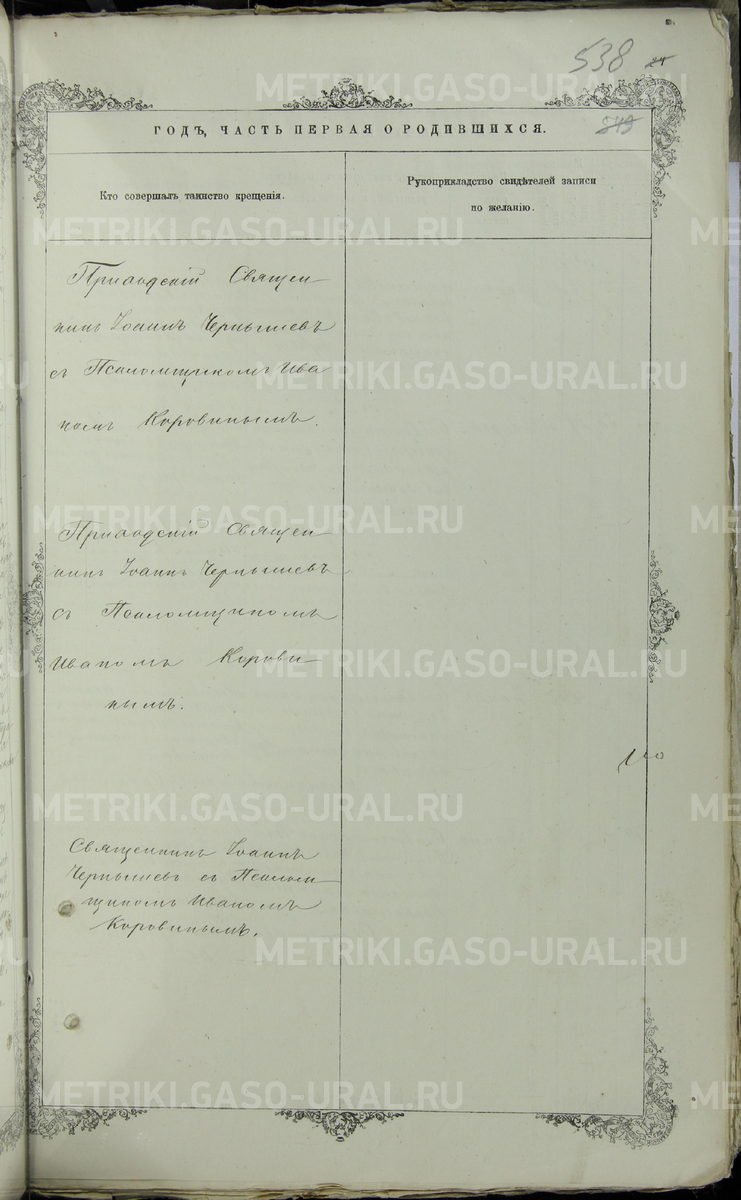 538
ГОДЪ, ЧАСТЬ ПЕРВАЯ О РОДИВШИХСЯ.
Кто совершалъ таинство крещенія.
Рукоприкладство свидѣтелей записи
по желанію.
Приходскій Священ-
никъ Іоаннъ Чернышевъ
съ Псаломщикомъ Ива
номъ Коровинымъ.
Приходскій Священ-
никъ Іоаннъ Чернышевъ
съ Псаломщикомъ
Иваномъ Корови-
нымъ.
Священникъ Іоаннъ
Чернышевъ съ Псалом-
щикомъ Иваномъ
Коровинымъ.
METRIKI.GASO-URAL.RU